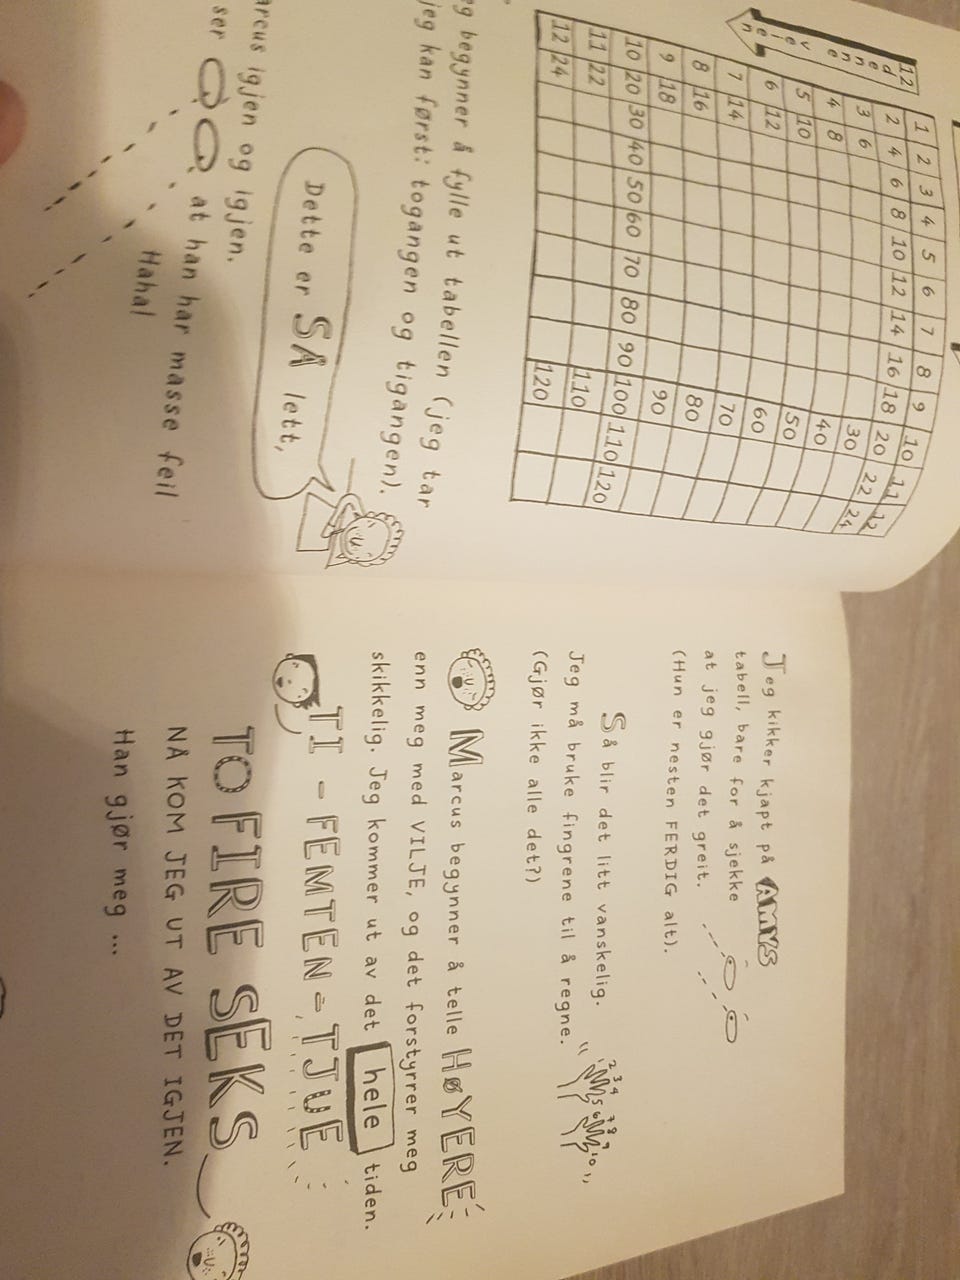 12
denne
veien
1 2 3 4 5 6 7 8 9 10 11 12
2 4 6 8 10 12 14 16 18 20 22 24
3 6 30
4 8 40
5 10 50
6 12 60
7 14 70
8 16 80
9 18 90
10 20 30 40 50 60 70 80 90 100 110 120
11 22 110
12 24 120
g begynner å fylle ut tabellen (jeg tar
jeg kan først: togangen og tigangen).
Dette er SÅ lett,
arcus igjen og igjen.
ser at han har masse feil
Haha!
Jeg kikker kjapt på AMYS
tabell, bare for å sjekke
at jeg gjør det greit.
(Hun er nesten FERDIG alt).
Så blir det litt vanskelig.
Jeg må bruke fingrene til å regne.
2 3 4 5 6 7 8 9 10
(Gjør ikke alle det?)
Marcus begynner å telle HØYERE
enn meg med VILJE, og det forstyrrer meg
skikkelig. Jeg kommer ut av det hele tiden.
TI - FEMTEN - TJUE
TO FIRE SEKS
NÅ KOM JEG UT AV DET IGJEN.
Han gjør meg ...